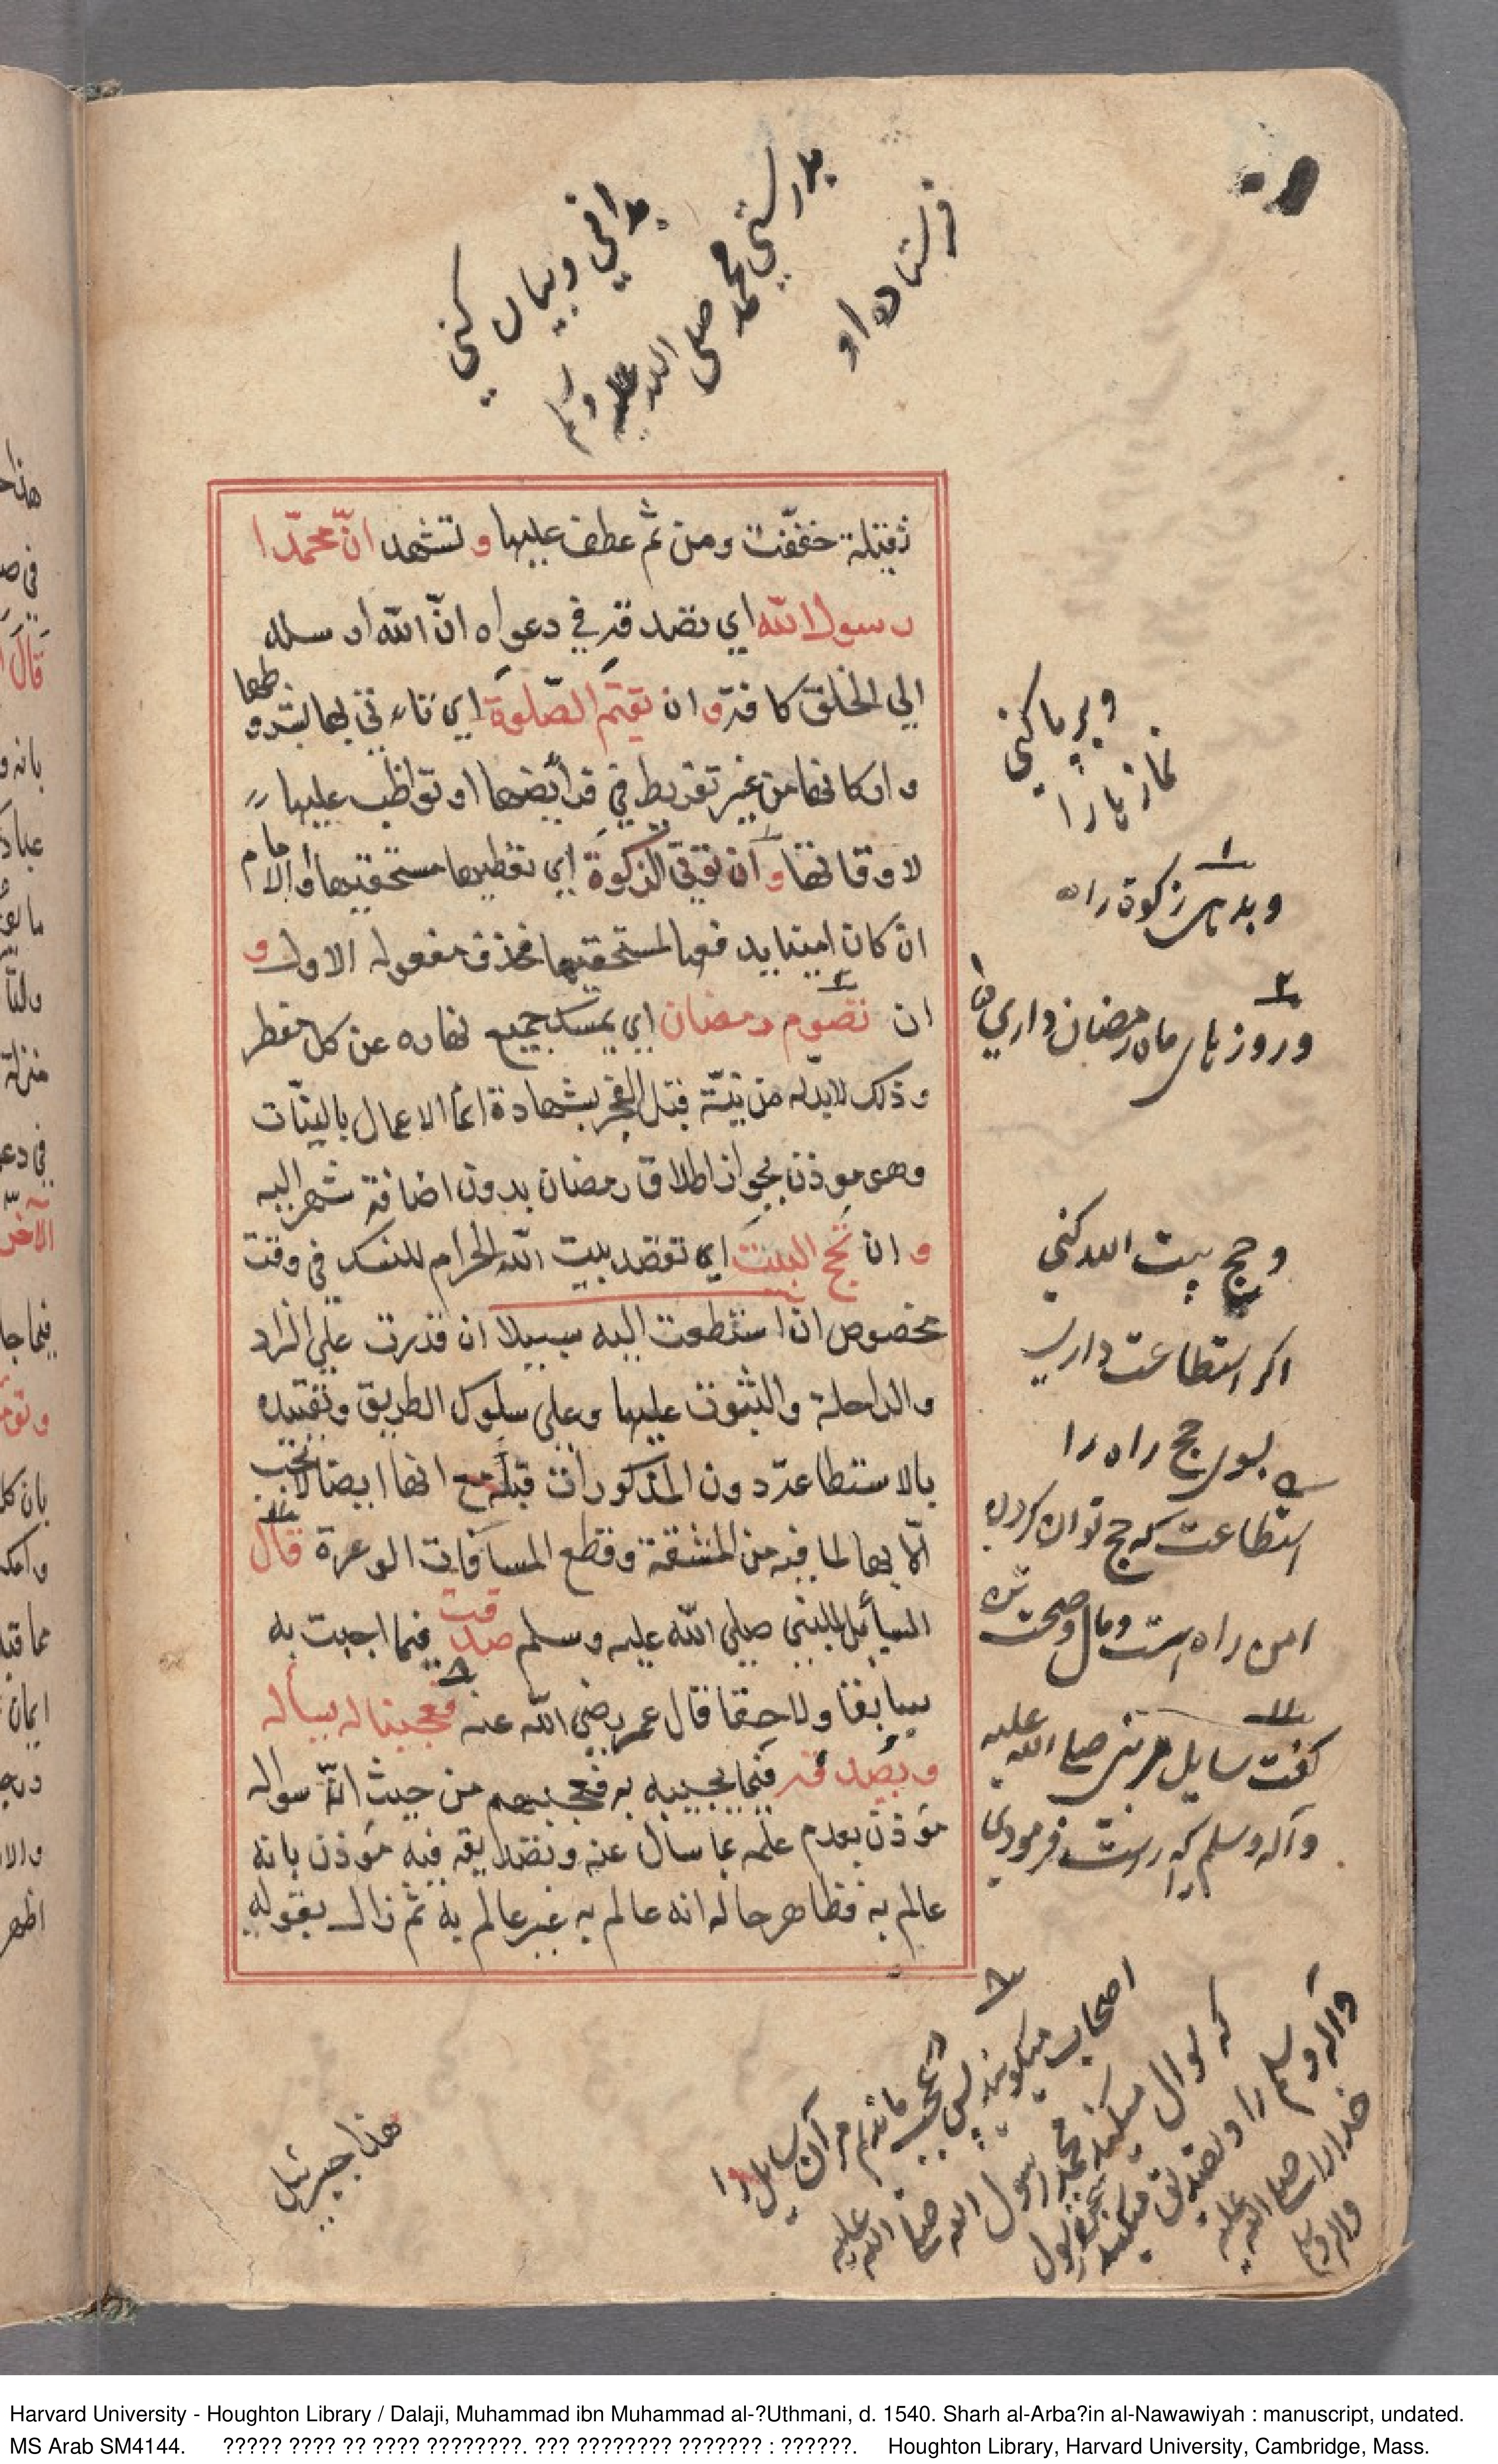 بدانی و بیان کنی
بدرستی محمد صلی الله علیه وسلم
فرستاده او
ثقيلة خففت ومن ثم عطف عليها و تشهد انّ محمّدا
رسول الله اي تصدقه في دعواه انّ الله ارسله
الي الخلق كافة و ان تقيم الصّلوة اي تاءتي بها بشروطها
واركانها من غير تفريط في فرائضها او تواظب عليها
لاوقاتها و ان تؤتي الزكوة اي تعطيها مستحقيها والامام
ان كان امينا يدفعها لمستحقيها فحذف مفعوله الاول و
ان تصوم رمضان اي يمسك جميع نهاره عن كل مفطر
وذلك لابدّ له من نيّة قبل الفجر بشهادة انّما الاعمال بالنيّات
وهو موذن بجواز اطلاق رمضان بدون اضافة شهر اليه
و ان تحج البيت اي تقصد بيت الله الحرام للنسك في وقت
مخصوص ان استطعت اليه سبيلا ان قدرت علي الزاد
والراحلة والثبوت عليها وعلي سلوك الطريق وتقييده
بالاستطاعة دون المذكورات قبله مع انها ايضا لاتجب
الّا بها لما فيه من المشقة وقطع المسافات الوعرة قال
السائل للنبي صلي الله عليه وسلم صدقت فيما اجبت به
سابقا ولاحقا قال عمر رضي الله عنه فعجبنا له يسأله
ويصدقه فيما يجيبه به فعجبهم من حيث انّ سواله
موذن بعدم علمه بما سأل عنه وتصديقه فيه موذن بانه
عالم به فظاهر حاله انه عالم به غير عالم به ثم زال بقوله
و برپا کنی
نماز را
و بدهی زکوة را
و روزهای ماه رمضان داری
و حج بیت الله کنی
اکر استطاعت داری
بسوی حج راه را
استطاعت که حج توان کردن
امن راه است و مال و صحت
کفت سایل مر نبی صلی الله علیه
وآله وسلم که راست فرمودی
اصحاب میکویند پس تعجب ماندیم مر آن سایل را
که سوال میکند محمد رسول الله صلی الله علیه
وآله وسلم را و تصدیق میکند
هذا جبرئیل
Harvard University - Houghton Library / Dalaji, Muhammad ibn Muhammad al-?Uthmani, d. 1540. Sharh al-Arba?in al-Nawawiyah : manuscript, undated.
MS Arab SM4144. ????? ???? ?? ???? ????????. ??? ???????? ??????? : ??????. Houghton Library, Harvard University, Cambridge, Mass.